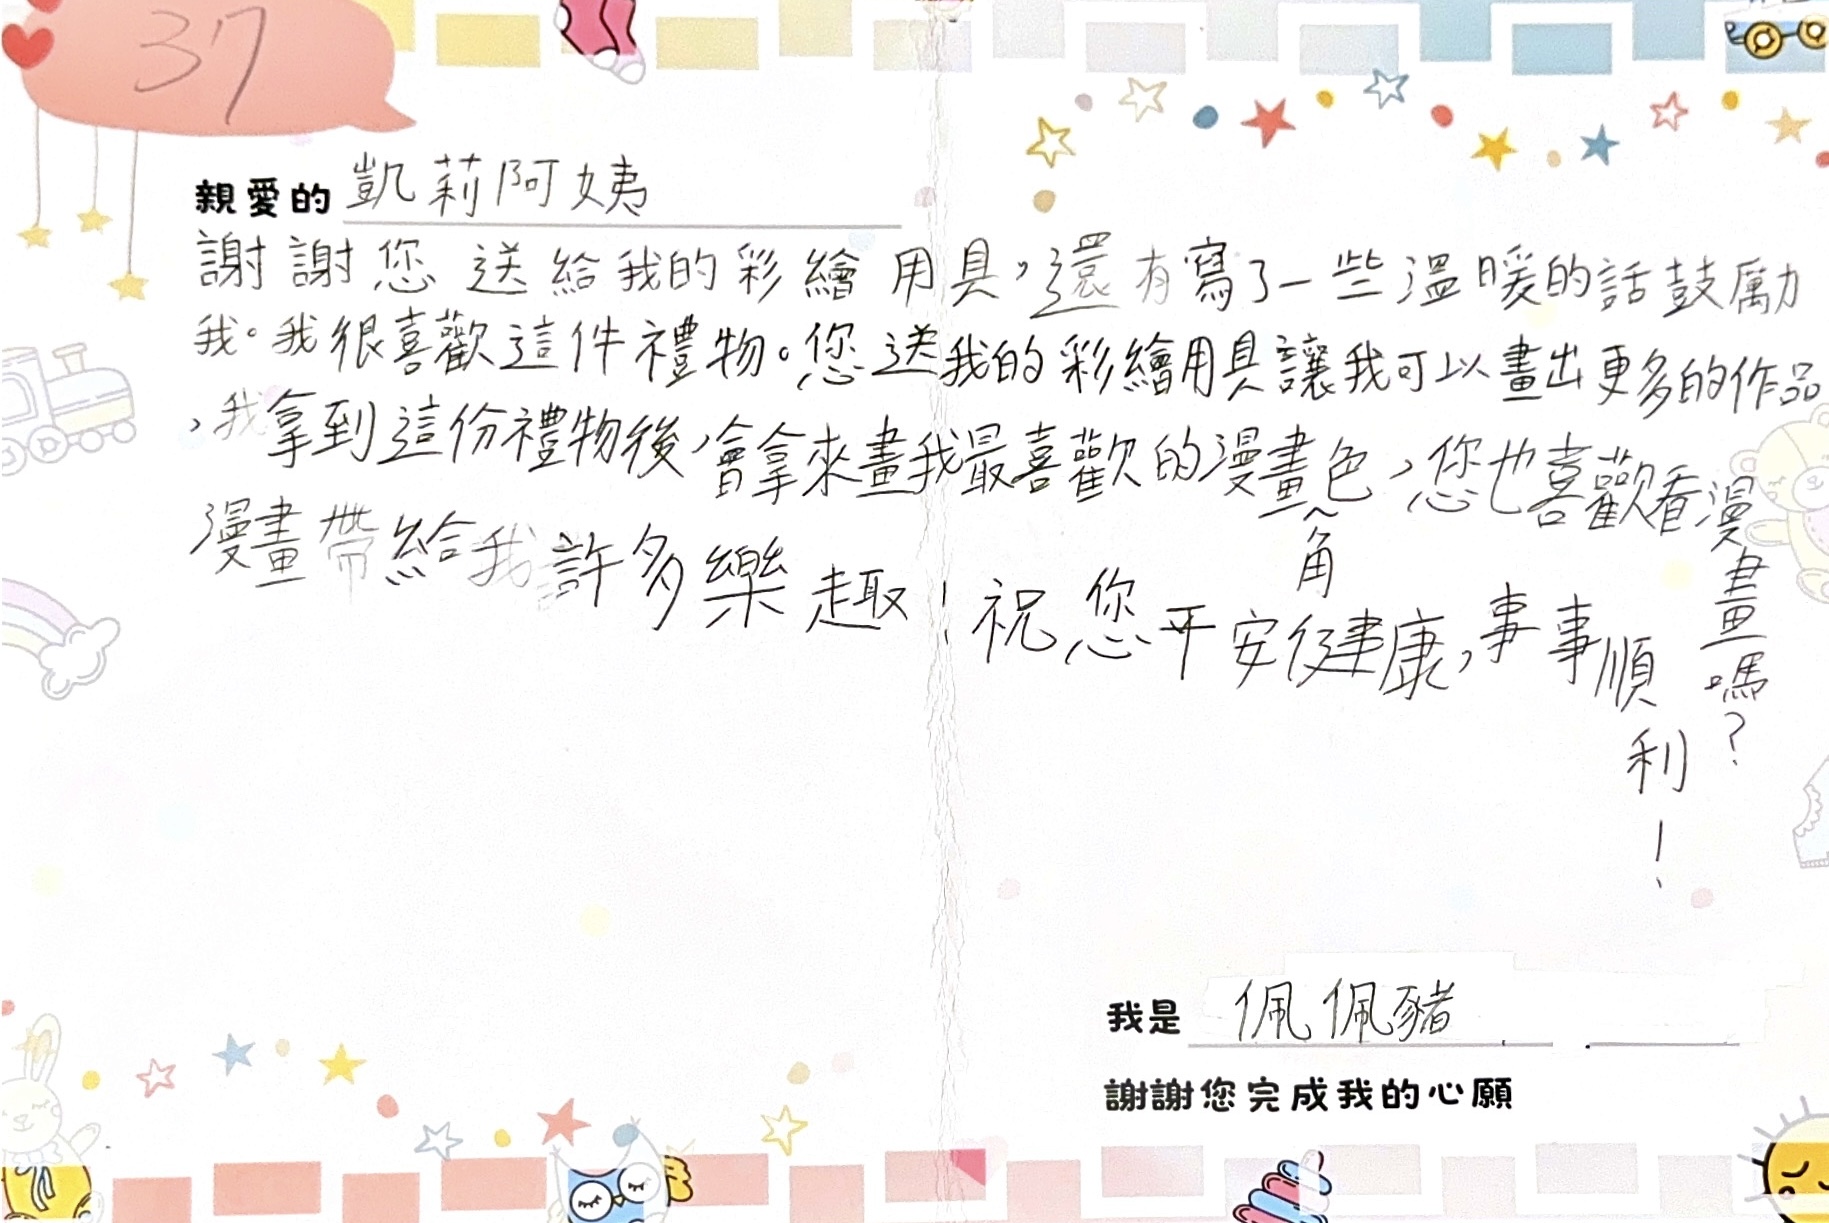 37
親愛的 凱莉阿姨
謝謝您送給我的彩繪用具，還有寫了一些溫暖的話鼓勵
我。我很喜歡這件禮物。您送我的彩繪用具讓我可以畫出更多的作品
，我拿到這份禮物後，會拿來畫我最喜歡的漫畫角色，您也喜歡看漫畫嗎？
漫畫帶給我許多樂趣！祝您平安健康，事事順利！
我是 佩佩豬
謝謝您完成我的心願